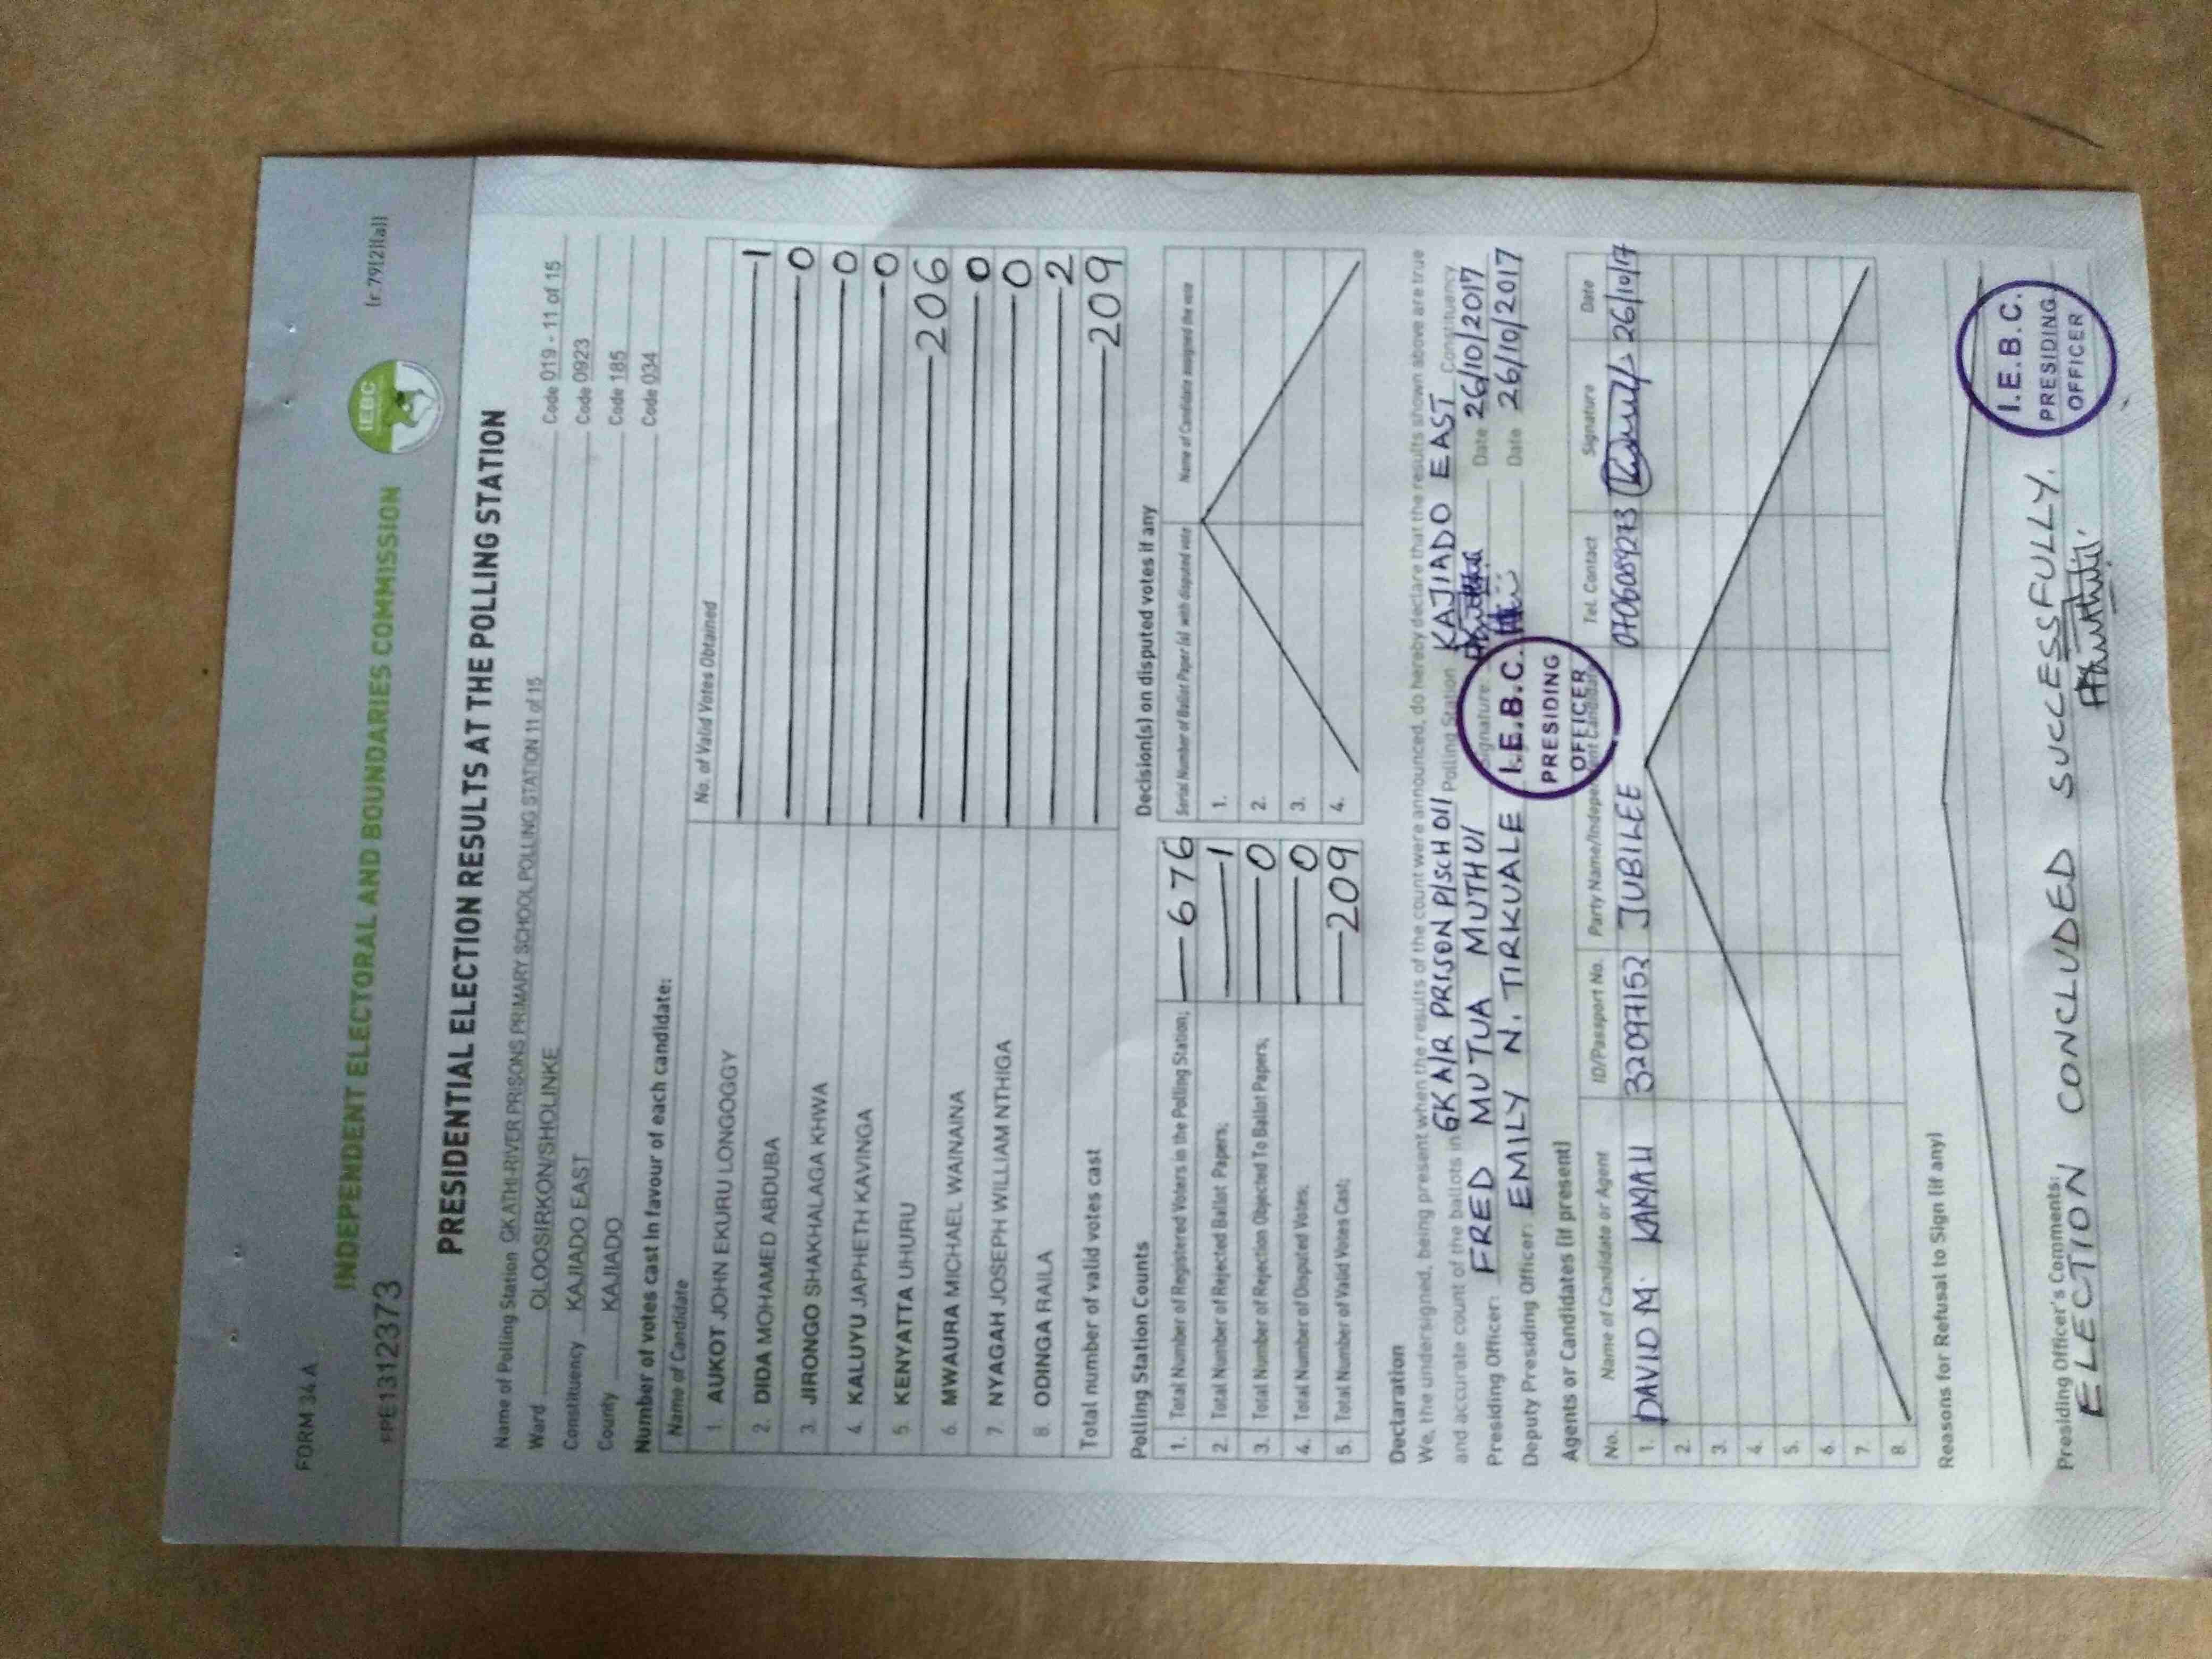 FORM 34 A
(r.79(2)(a))
INDEPENDENT ELECTORAL AND BOUNDARIES COMMISSION
IEBC
PRE1312373
PRESIDENTIAL ELECTION RESULTS AT THE POLLING STATION
Name of Polling Station GK ATHI-RIVER PRISONS PRIMARY SCHOOL POLLING STATION 11 of 15 Code 019 - 11 of 15
Ward OLOOSIRKON/SHOLINKE Code 0923
Constituency KAJIADO EAST Code 185
County KAJIADO Code 034
Number of votes cast in favour of each candidate:
Name of Candidate No. of Valid Votes Obtained
1. AUKOT JOHN EKURU LONGOGGY 1
2. DIDA MOHAMED ABDUBA 0
3. JIRONGO SHAKHALAGA KHWA 0
4. KALUYU JAPHETH KAVINGA 0
5. KENYATTA UHURU 206
6. MWAURA MICHAEL WAINAINA 0
7. NYAGAH JOSEPH WILLIAM NTHIGA 0
8. ODINGA RAILA 2
Total number of valid votes cast 209
Polling Station Counts
1. Total Number of Registered Voters in the Polling Station; 676
2. Total Number of Rejected Ballot Papers; 1
3. Total Number of Rejection Objected To Ballot Papers; 0
4. Total Number of Disputed Votes; 0
5. Total Number of Valid Votes Cast; 209
Decision(s) on disputed votes if any
Serial Number of Ballot Paper (s) with disputed vote Name of Candidate assigned the vote
1.
2.
3.
4.
Declaration
We, the undersigned, being present when the results of the count were announced, do hereby declare that the results shown above are true
and accurate count of the ballots in GK A/R PRISON P/SCH 011 Polling Station KAJIADO EAST Constituency
Presiding Officer: FRED MUTUA MUTHUI Signature Date 26/10/2017
Deputy Presiding Officer: EMILY N. TIRKUALE Date 26/10/2017
I.E.B.C.
PRESIDING
OFFICER
Agents or Candidates (if present)
No. Name of Candidate or Agent ID/Passport No. Party Name/Independent Candidate Tel. Contact Signature Date
1. DAVID M. KAMAU 32097152 JUBILEE 0706089273 26/10/17
2.
3.
4.
5.
6.
7.
8.
Reasons for Refusal to Sign (if any)
Presiding Officer's Comments:
ELECTION CONCLUDED SUCCESSFULLY.
I.E.B.C.
PRESIDING
OFFICER